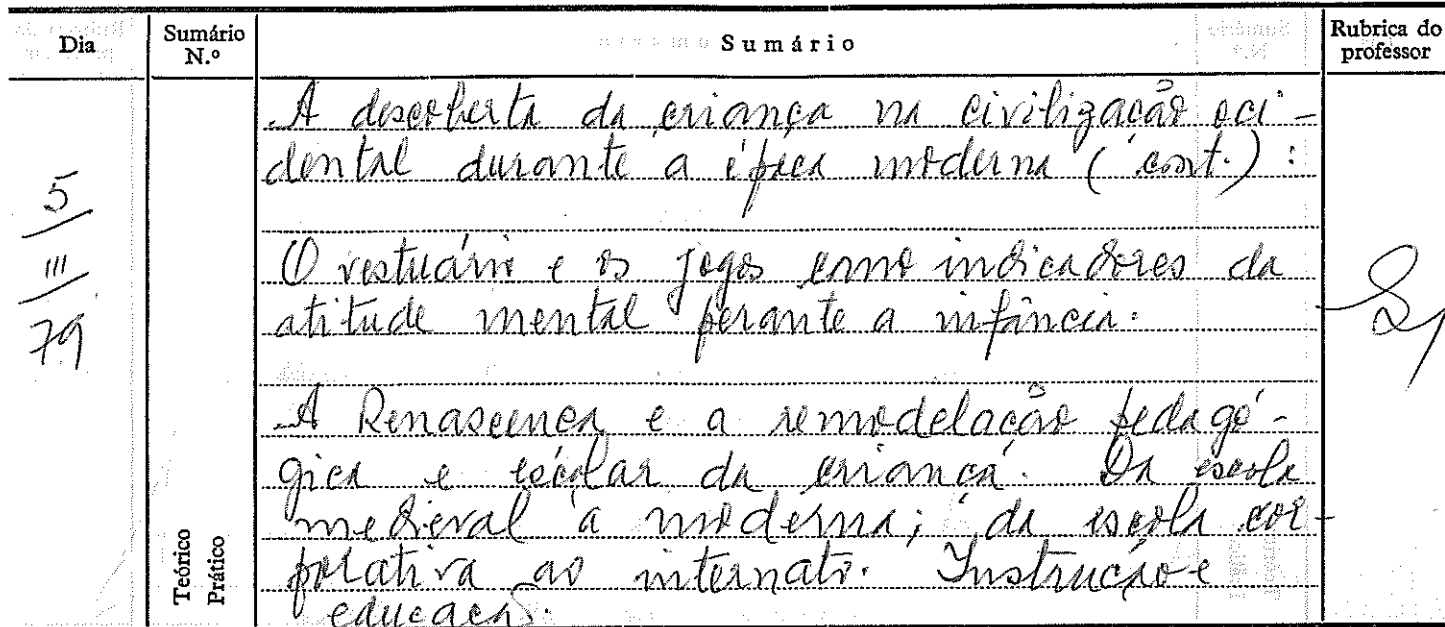 Dia
Sumário N.º
Sumário
Rubrica do professor
5
III
79
A descoberta da criança na civilização oci-
dental durante a época moderna (cont.):
O vestuário e os jogos como indicadores da
atitude mental perante a infância.
A Renascença e a remodelação pedagó-
gica e escolar da criança. Da escola
medieval à moderna; da escola cor-
porativa ao internato. Instrução e
educação.
Teórico
Prático